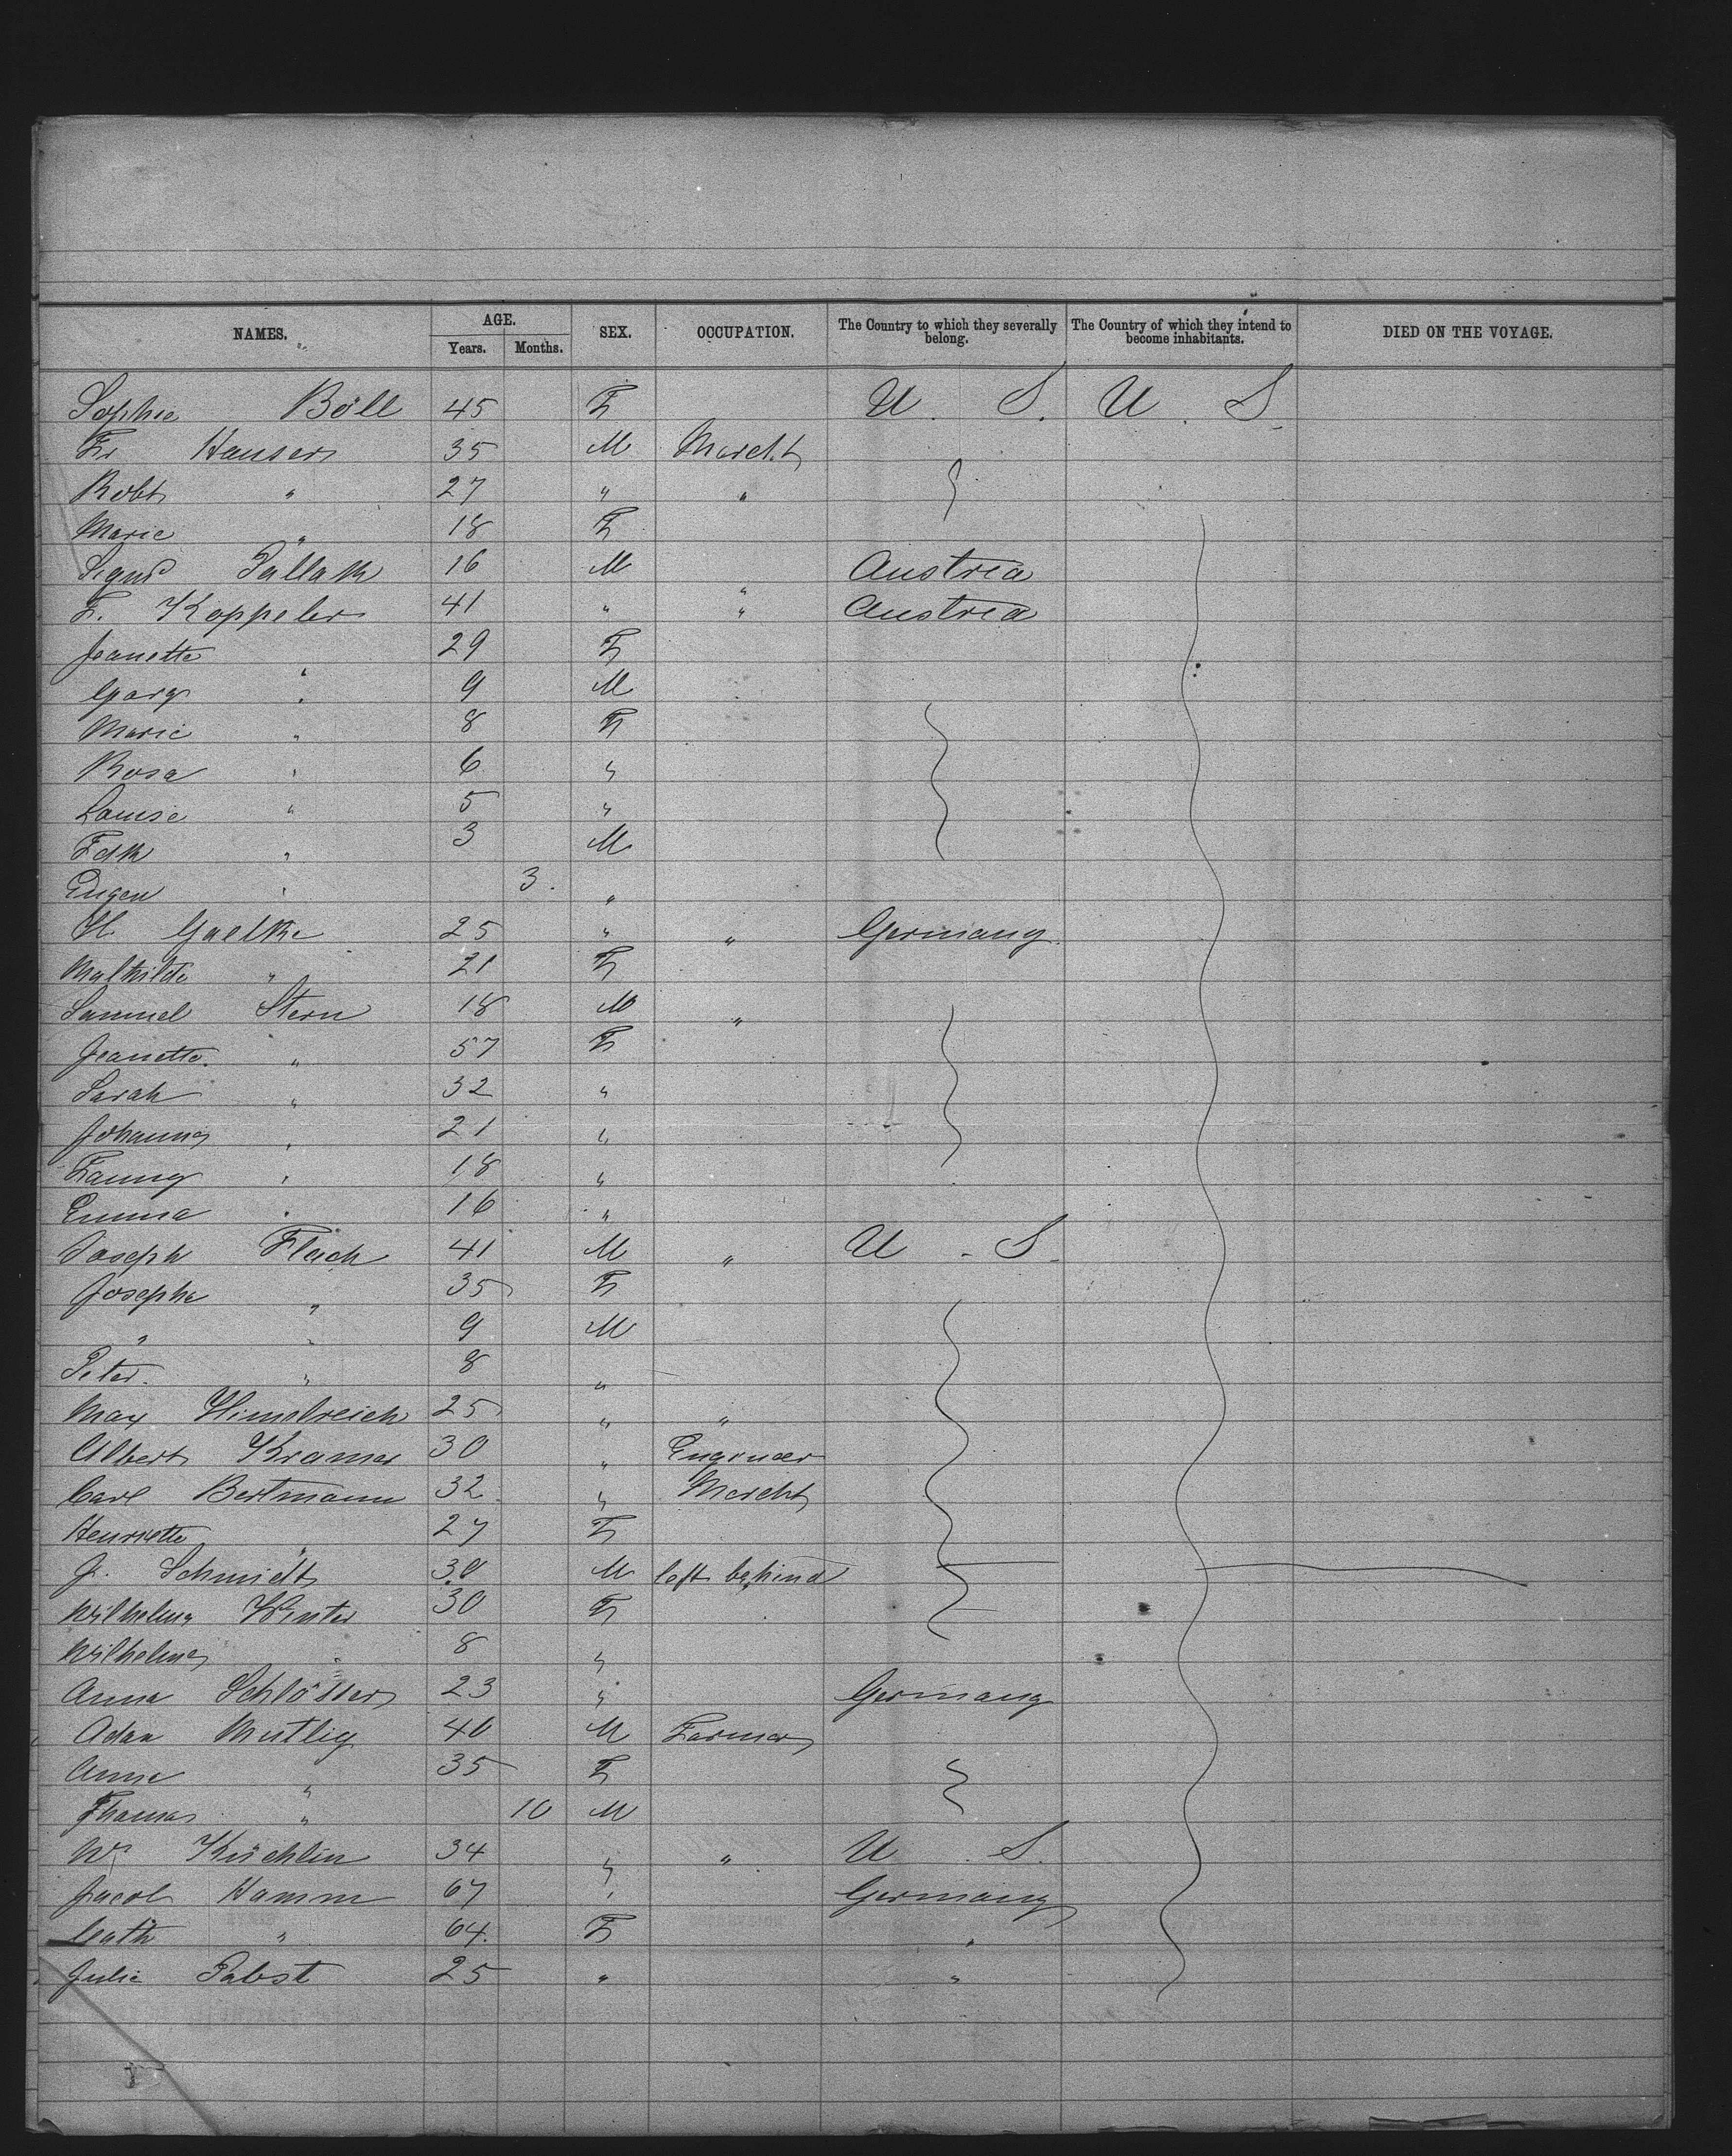 NAMES. AGE. SEX. OCCUPATION. The Country to which they severally belong. The Country of which they intend to become inhabitants. DIED ON THE VOYAGE.
Years. Months.
Sophie Böll 45 F U. S. U. S.
Fr Hauser 35 M Marcht
Robt " 27 " "
Marie " 18 F
Sigmd Pallak 16 M " Austria
F. Koppeler 41 " " Austria
Jeanette " 29 F
Georg " 9 M
Marie " 8 F
Rosa " 6 "
Louise " 5 "
Fdk " 3 M
Eugen " 3. "
H. Gaelke 25 " " Germany
Mathilde " 21 F
Samuel Stern 18 M "
Jeanette. " 57 F
Sarah " 32 "
Johanna " 21 "
Fanny " 18 "
Emma " 16 "
Joseph Flach 41 M " U. S.
Josepha " 35 F
" " 9 M
Peter. " 8 "
Max Himelreich 25 " "
Albert Kramer 30 " Engineer
Carl Bertmann 32 " Marcht
Henriette " 27 F
J. Schmidt 30 M left behind
Wilhelma Winter 30 F
Wilhelma " 8 "
Anna Schlösser 23 " Germany
Adam Mutlig 40 M Farmer
Anna " 35 F
Thomas " 10 M
Wm Küchlin 34 " " U. S.
Jacob Hamm 67 " Germany
Cath " 64. F "
Julie Pabst 25 " "